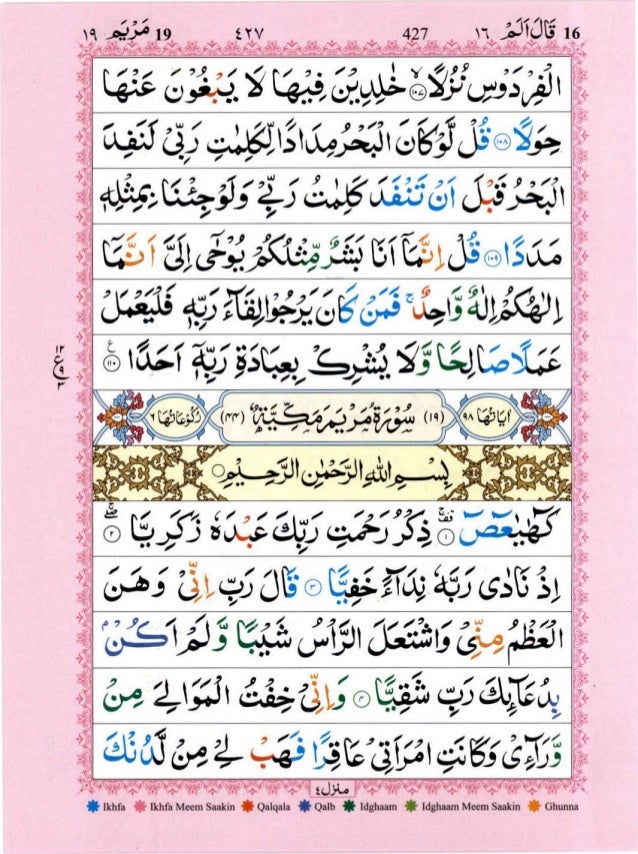 ١٩ مَرْيَم 19 ٤٢٧ 427 قَالَ اَلَمْ ١٦ 16
الْفِرْدَوْسِ نُزُلًا ۙ﴿١٠٧﴾ خٰلِدِيْنَ فِيْهَا لَا يَبْغُوْنَ عَنْهَا
حِوَلًا ﴿١٠٨﴾ قُلْ لَّوْ كَانَ الْبَحْرُ مِدَادًا لِّكَلِمٰتِ رَبِّيْ لَنَفِدَ
الْبَحْرُ قَبْلَ اَنْ تَنْفَدَ كَلِمٰتُ رَبِّيْ وَلَوْ جِئْنَا بِمِثْلِهٖ
مَدَدًا ﴿١٠٩﴾ قُلْ اِنَّمَاۤ اَنَا بَشَرٌ مِّثْلُكُمْ يُوْحٰۤى اِلَيَّ اَنَّمَاۤ
اِلٰهُكُمْ اِلٰهٌ وَّاحِدٌ ۚ فَمَنْ كَانَ يَرْجُوْا لِقَآءَ رَبِّهٖ فَلْيَعْمَلْ
عَمَلًا صَالِحًا وَّلَا يُشْرِكْ بِعِبَادَةِ رَبِّهٖۤ اَحَدًا ﴿١١٠﴾ ع
١٢
ع
٩
٣
اٰيَاتُهَا ٩٨ (١٩) سُوْرَةُ مَرْيَمَ مَكِّيَّةٌ (٤٤) رُكُوْعَاتُهَا ٦
بِسْمِ اللّٰهِ الرَّحْمٰنِ الرَّحِيْمِ
كٓهٰيٰعٓصٓ ﴿١﴾ ذِكْرُ رَحْمَتِ رَبِّكَ عَبْدَهٗ زَكَرِيَّا ﴿٢﴾
اِذْ نَادٰى رَبَّهٗ نِدَآءً خَفِيًّا ﴿٣﴾ قَالَ رَبِّ اِنِّيْ وَهَنَ
الْعَظْمُ مِنِّيْ وَاشْتَعَلَ الرَّاْسُ شَيْبًا وَّلَمْ اَكُنْۢ
بِدُعَآئِكَ رَبِّ شَقِيًّا ﴿٤﴾ وَاِنِّيْ خِفْتُ الْمَوَالِيَ مِنْ
وَّرَآءِيْ وَكَانَتِ امْرَاَتِيْ عَاقِرًا فَهَبْ لِيْ مِنْ لَّدُنْكَ
منزل ٤
Ikhfa Ikhfa Meem Saakin Qalqala Qalb Idghaam Idghaam Meem Saakin Ghunna